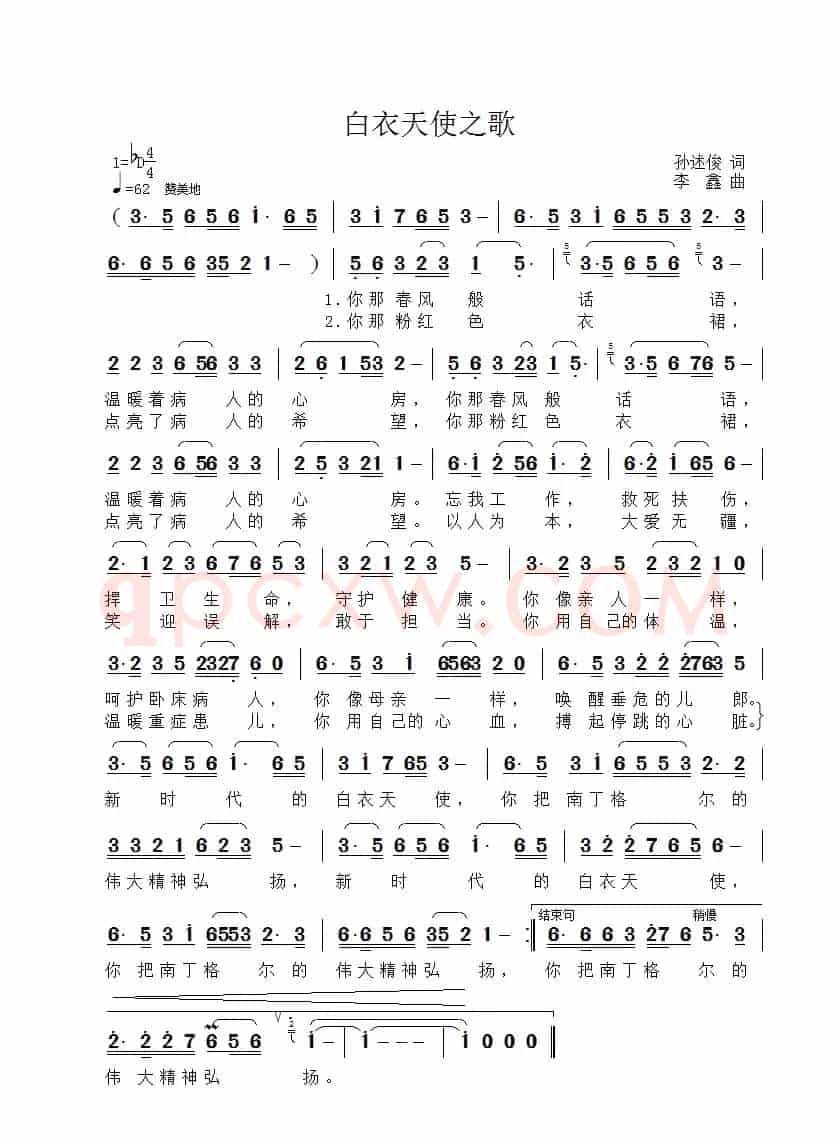 白衣天使之歌
1=♭D 4/4
孙述俊 词
♩=62 赞美地
李 鑫 曲
( 3· 5 6 5 6 i· 6 5 | 3 i 7 6 5 3 – | 6· 5 3 i 6 5 5 3 2· 3 |
6· 6 5 6 3 5 2 1 – ) | 5 6 3 2 3 1 5· | 5 3·5 6 5 6 5 3 – |
1.你那 春风 般 话 语,
2.你那 粉红 色 衣 裙,
2 2 3 6 56 3 3 | 2 6 1 53 2 – | 5 6 3 23 1 5· | 5 3·5 6 76 5 – |
温暖着病 人的 心 房, 你那春风 般 话 语,
点亮了病 人的 希 望, 你那粉红 色 衣 裙,
2 2 3 6 56 3 3 | 2 5 3 21 1 – | 6·i 2 56 i·2 | 6·2 i 65 5 |
温暖着病 人的 心 房。 忘我工 作, 救死扶 伤,
点亮了病 人的 希 望。 以人为 本, 大爱无 疆,
2·1 2 3 6 7 6 5 3 | 3 2 1 2 3 5 – | 3· 2 3 5 2 3 2 1 0 |
捍 卫 生 命, 守护 健 康。 你 像亲 人 一 样,
笑 迎 误 解, 敢于 担 当。 你 用自 己的 体 温,
3·2 3 5 2327 6 0 | 6· 5 3 i 6563 2 0 | 6·5 3 2·2 2763 5 |
呵护卧床病 人, 你 像母亲 一 样, 唤 醒垂危的儿 郎。
温暖重症患 儿, 你 用自己的 心 血, 搏 起停跳的心 脏。
3· 5 6 5 6 i· 6 5 | 3 i 7 65 3 – | 6· 5 3 i 6 5 5 3 2· 2 |
新 时 代 的 白衣天 使, 你 把 南丁格 尔 的
3 3 2 1 6 2 3 5 – | 3· 5 6 5 6 i· 6 5 | 3 2 2 7 6 5 6 – |
伟大精神弘 扬, 新 时 代 的 白衣天 使,
结束句 稍慢
6· 5 3 i 6553 2· 3 | 6·6 5 6 35 2 1 – :‖ 6· 6 6 3 27 6 5· 3 |
你 把南丁格 尔 的 伟大精神弘 扬, 你 把南丁格 尔 的
2· 2 2 7 6 5 6 | 2 i – | i – – – | i 0 0 0 ‖
伟 大精神弘 扬。
qpcxw.COM